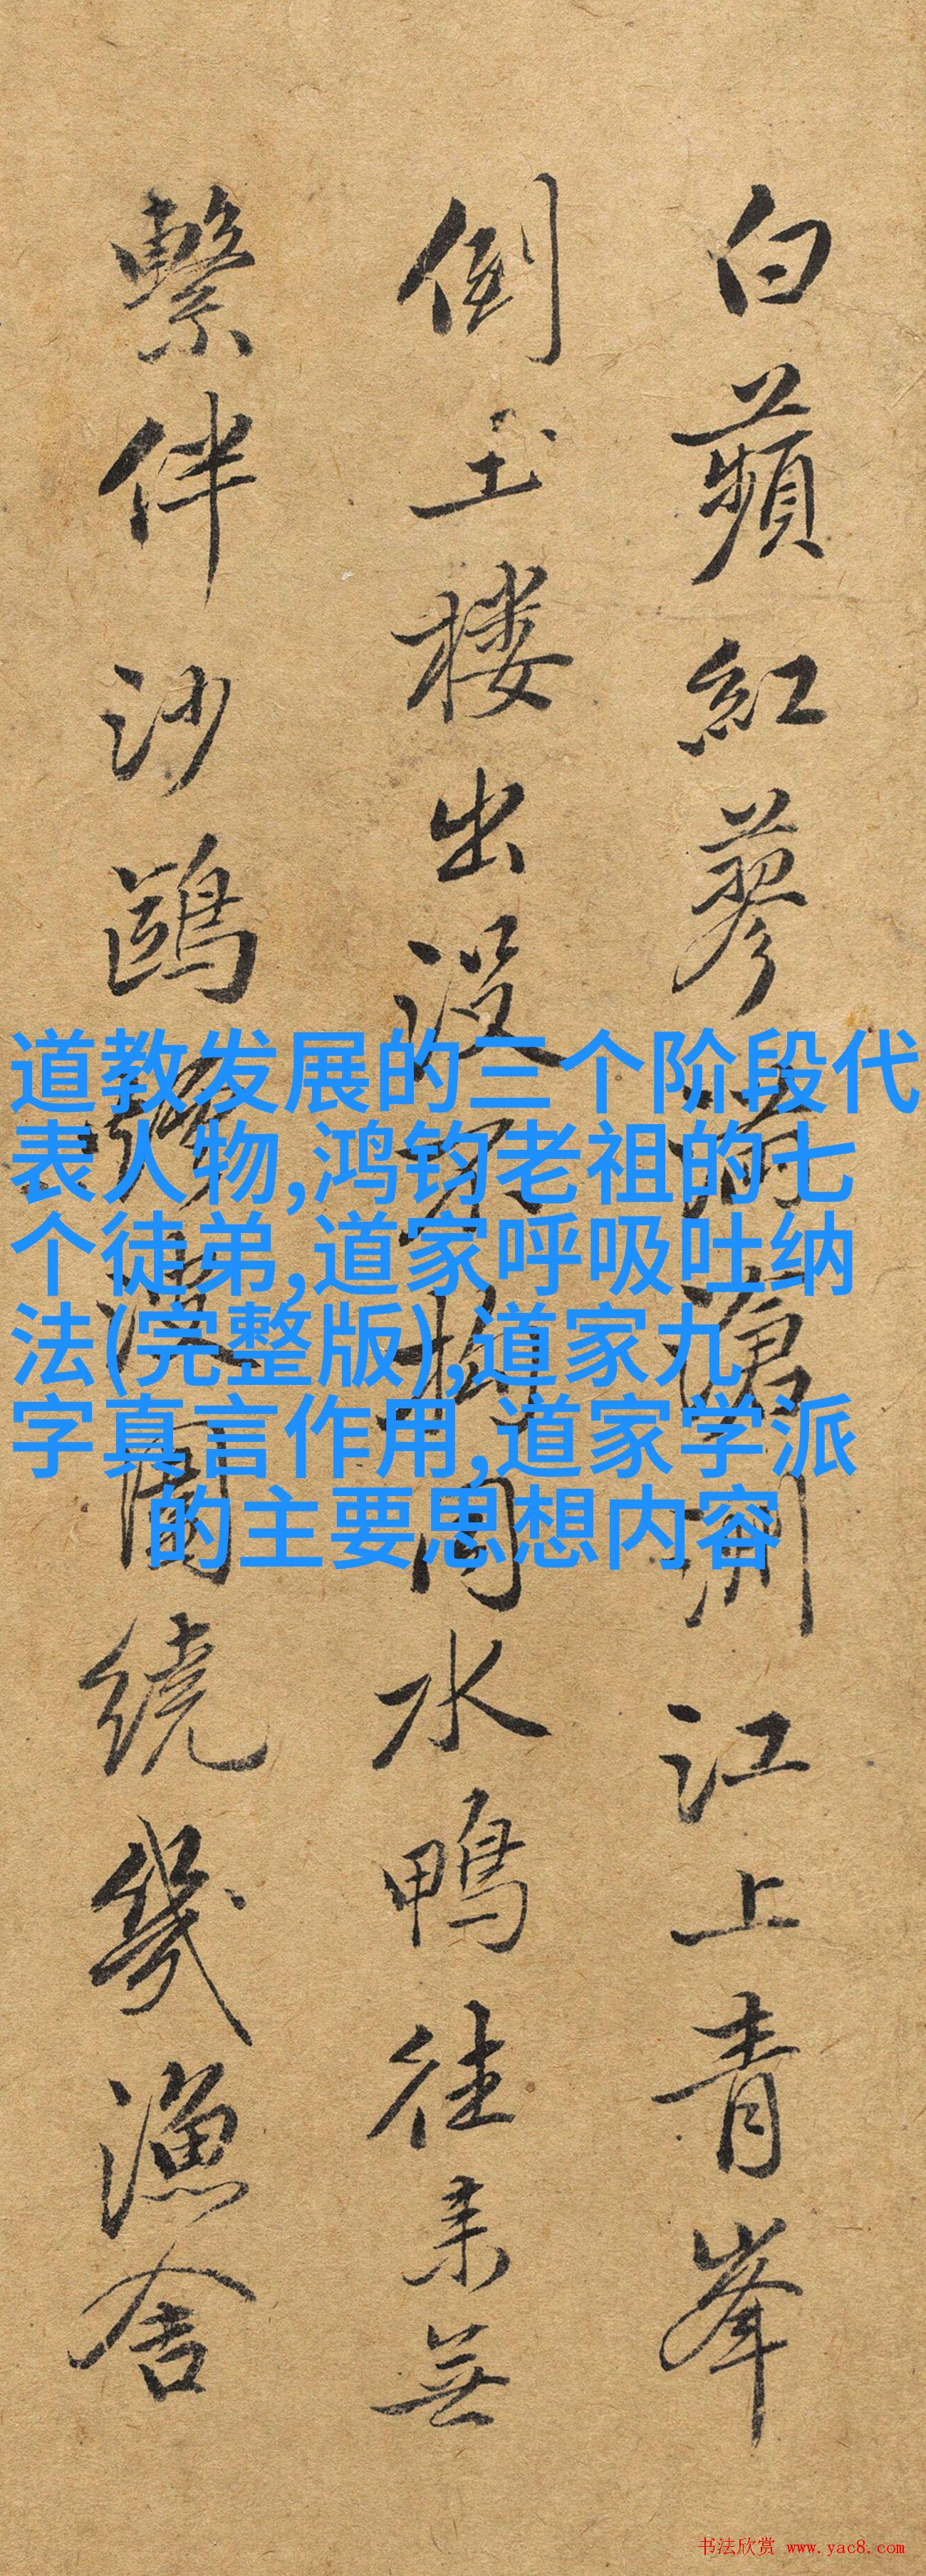 白蘋紅蓼滿滄洲江上青峯
倒玉楼出没不拘同水鴨往来無
繫伴沙鷗繞幾漁舍
道教发展的三个阶段代
表人物,鸿钧老祖的七
个徒弟,道家呼吸吐纳
法(完整版),道家九
字真言作用,道家学派
的主要思想内容
书法欣赏 www.yac8.com